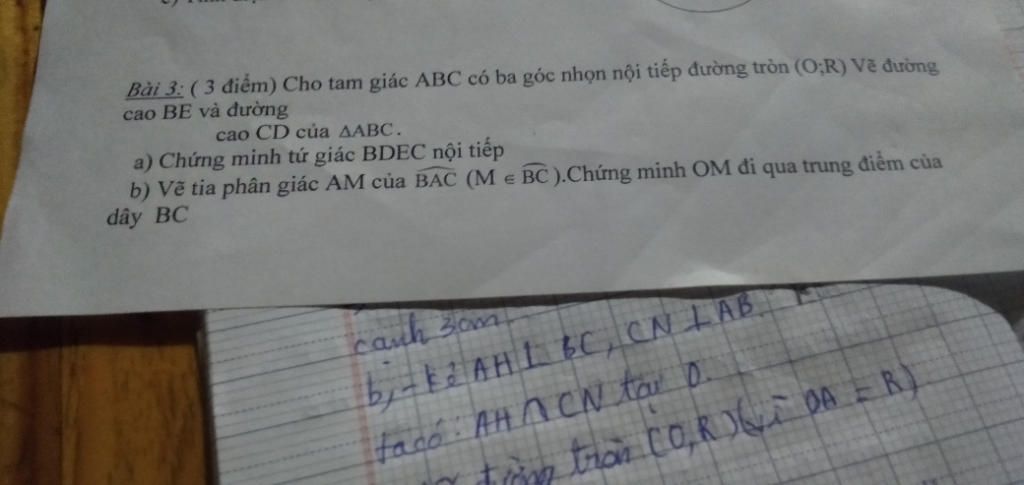 Bài 3: ( 3 điểm) Cho tam giác ABC có ba góc nhọn nội tiếp đường tròn (O;R) Vẽ đường
cao BE và đường
cao CD của ΔABC.
a) Chứng minh tứ giác BDEC nội tiếp
b) Vẽ tia phân giác AM của BAC (M ∈ BC).Chứng minh OM đi qua trung điểm của
dây BC
cạnh 3cm
b, - kẻ AH ⊥ BC, CN ⊥ AB.
ta có: AH ∩ CN tại O.
đường tròn (O,R) (vì OA = R)